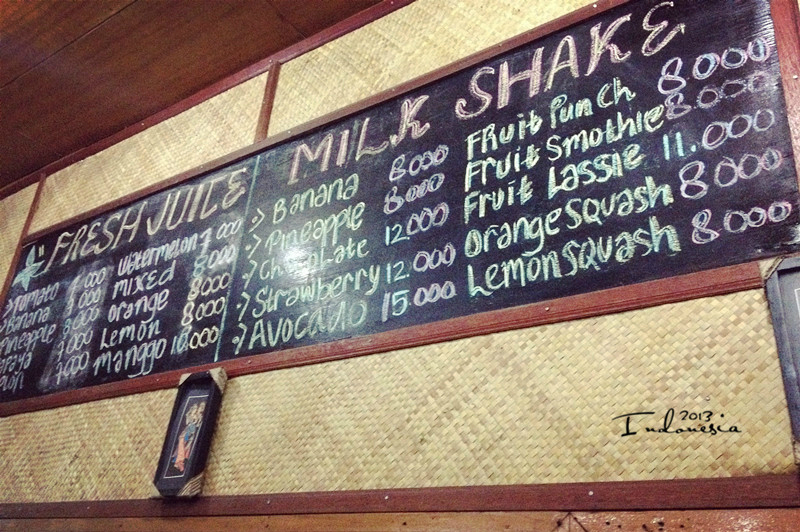 FRESH JUICE
Tomato 7 000 Watermelon 7 000
Banana 7 000 MIXED 8 000
Pineapple 8 000 Orange 8 000
7 000 Lemon 8 000
7 000 Manggo 10.000
MILK SHAKE
Banana 8 000
Pineapple 8 000
Chocolate 12 000
Strawberry 12.000
AVOCADO 15 000
FRuit Punch 8 000
Fruit Smothie 8 000
Fruit Lassie 11.000
Orange Squash 8 000
Lemon Squash 8 000
2013
Indonesia